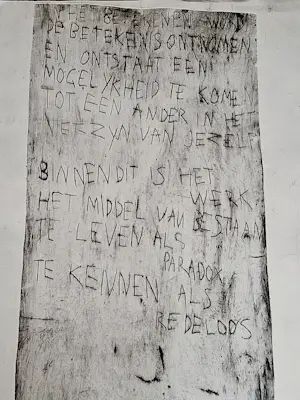 TE BETEKENEN WORDT
DE BETEKENIS ONTNOMEN
EN ONTSTAAT EEN
MOGELYKHEID TE KOMEN
TOT EEN ANDER IN HET
NIET ZYN VAN JEZELF
BINNEN DIT IS HET
WERK
HET MIDDEL VAN BESTAAN
TE LEVEN ALS
PARADOX
TE KENNEN ALS
REDELOOS